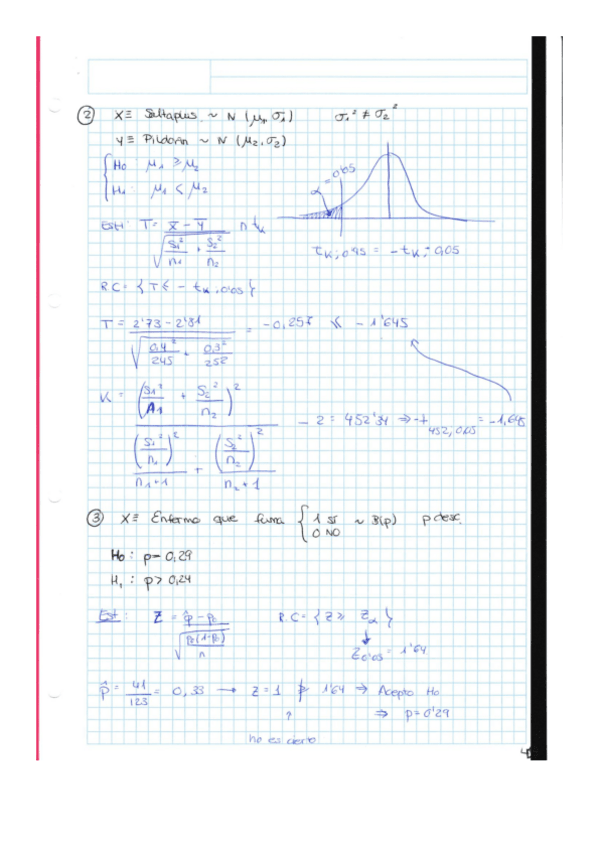 ② X≡ Saltaplus ~ N (μ₁, σ₁) σ₁² ≠ σ₂²
Y≡ Pildorín ~ N (μ₂, σ₂)
{ H₀: μ₁ ≥ μ₂
H₁: μ₁ < μ₂
α = 0'05
Est: T = (x̄ - ȳ) / √(S₁²/n₁ + S₂²/n₂) ~ t_K
t_K; 0'95 = - t_K; 0,05
RC = { T ≤ - t_K; 0'05 }
T = (2'73 - 2'81) / √(0,4²/245 + 0,3²/252) = -0,257 ≮ -1'645
K = (S₁²/n₁ + S₂²/n₂)² / ((S₁²/n₁)²/(n₁+1) + (S₂²/n₂)²/(n₂+1)) - 2 = 452'34 ⇒ -t_452, 0,05 = -1,645
③ X≡ Enfermo que fuma { 1 SI 0 NO ~ B(p) p desc.
H₀: p = 0,29
H₁: p > 0,24
Est: Z = (p̂ - p₀) / √(p₀(1-p₀)/n) R.C = { Z ≥ Z_α }
Z_0'05 = 1'64
p̂ = 41/123 = 0,33 → Z = 1 ≱ 1'64 ⇒ Acepto H₀
? ⇒ p = 0'29
no es cierto